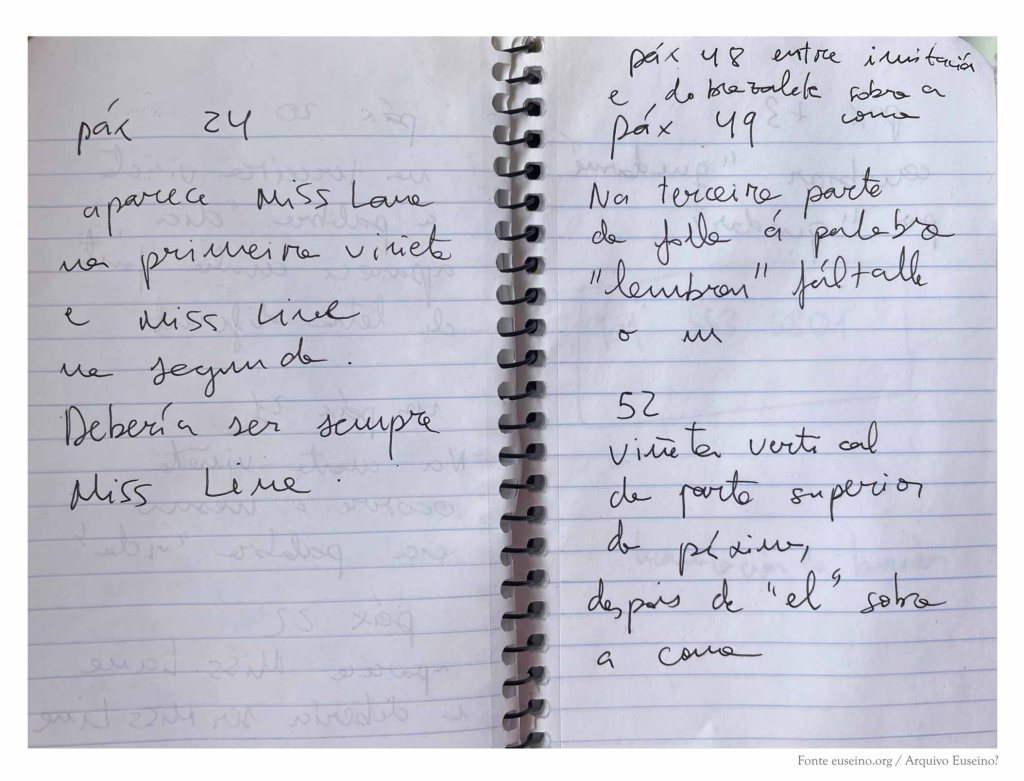 páx 24
aparece Miss Lane
na primeira viñeta
e Miss Line
na segunda.
Debería ser sempre
Miss Line.
páx 48 entre invitación
e do brazalete sobra a
coma
páx 49
Na terceira parte
da folla á palabra
"lembran" fáltalle
o m
52
viñeta vertical
da parte superior
da páxina,
despois de "el" sobra
a coma
Fonte euseino.org / Arquivo Euseino?